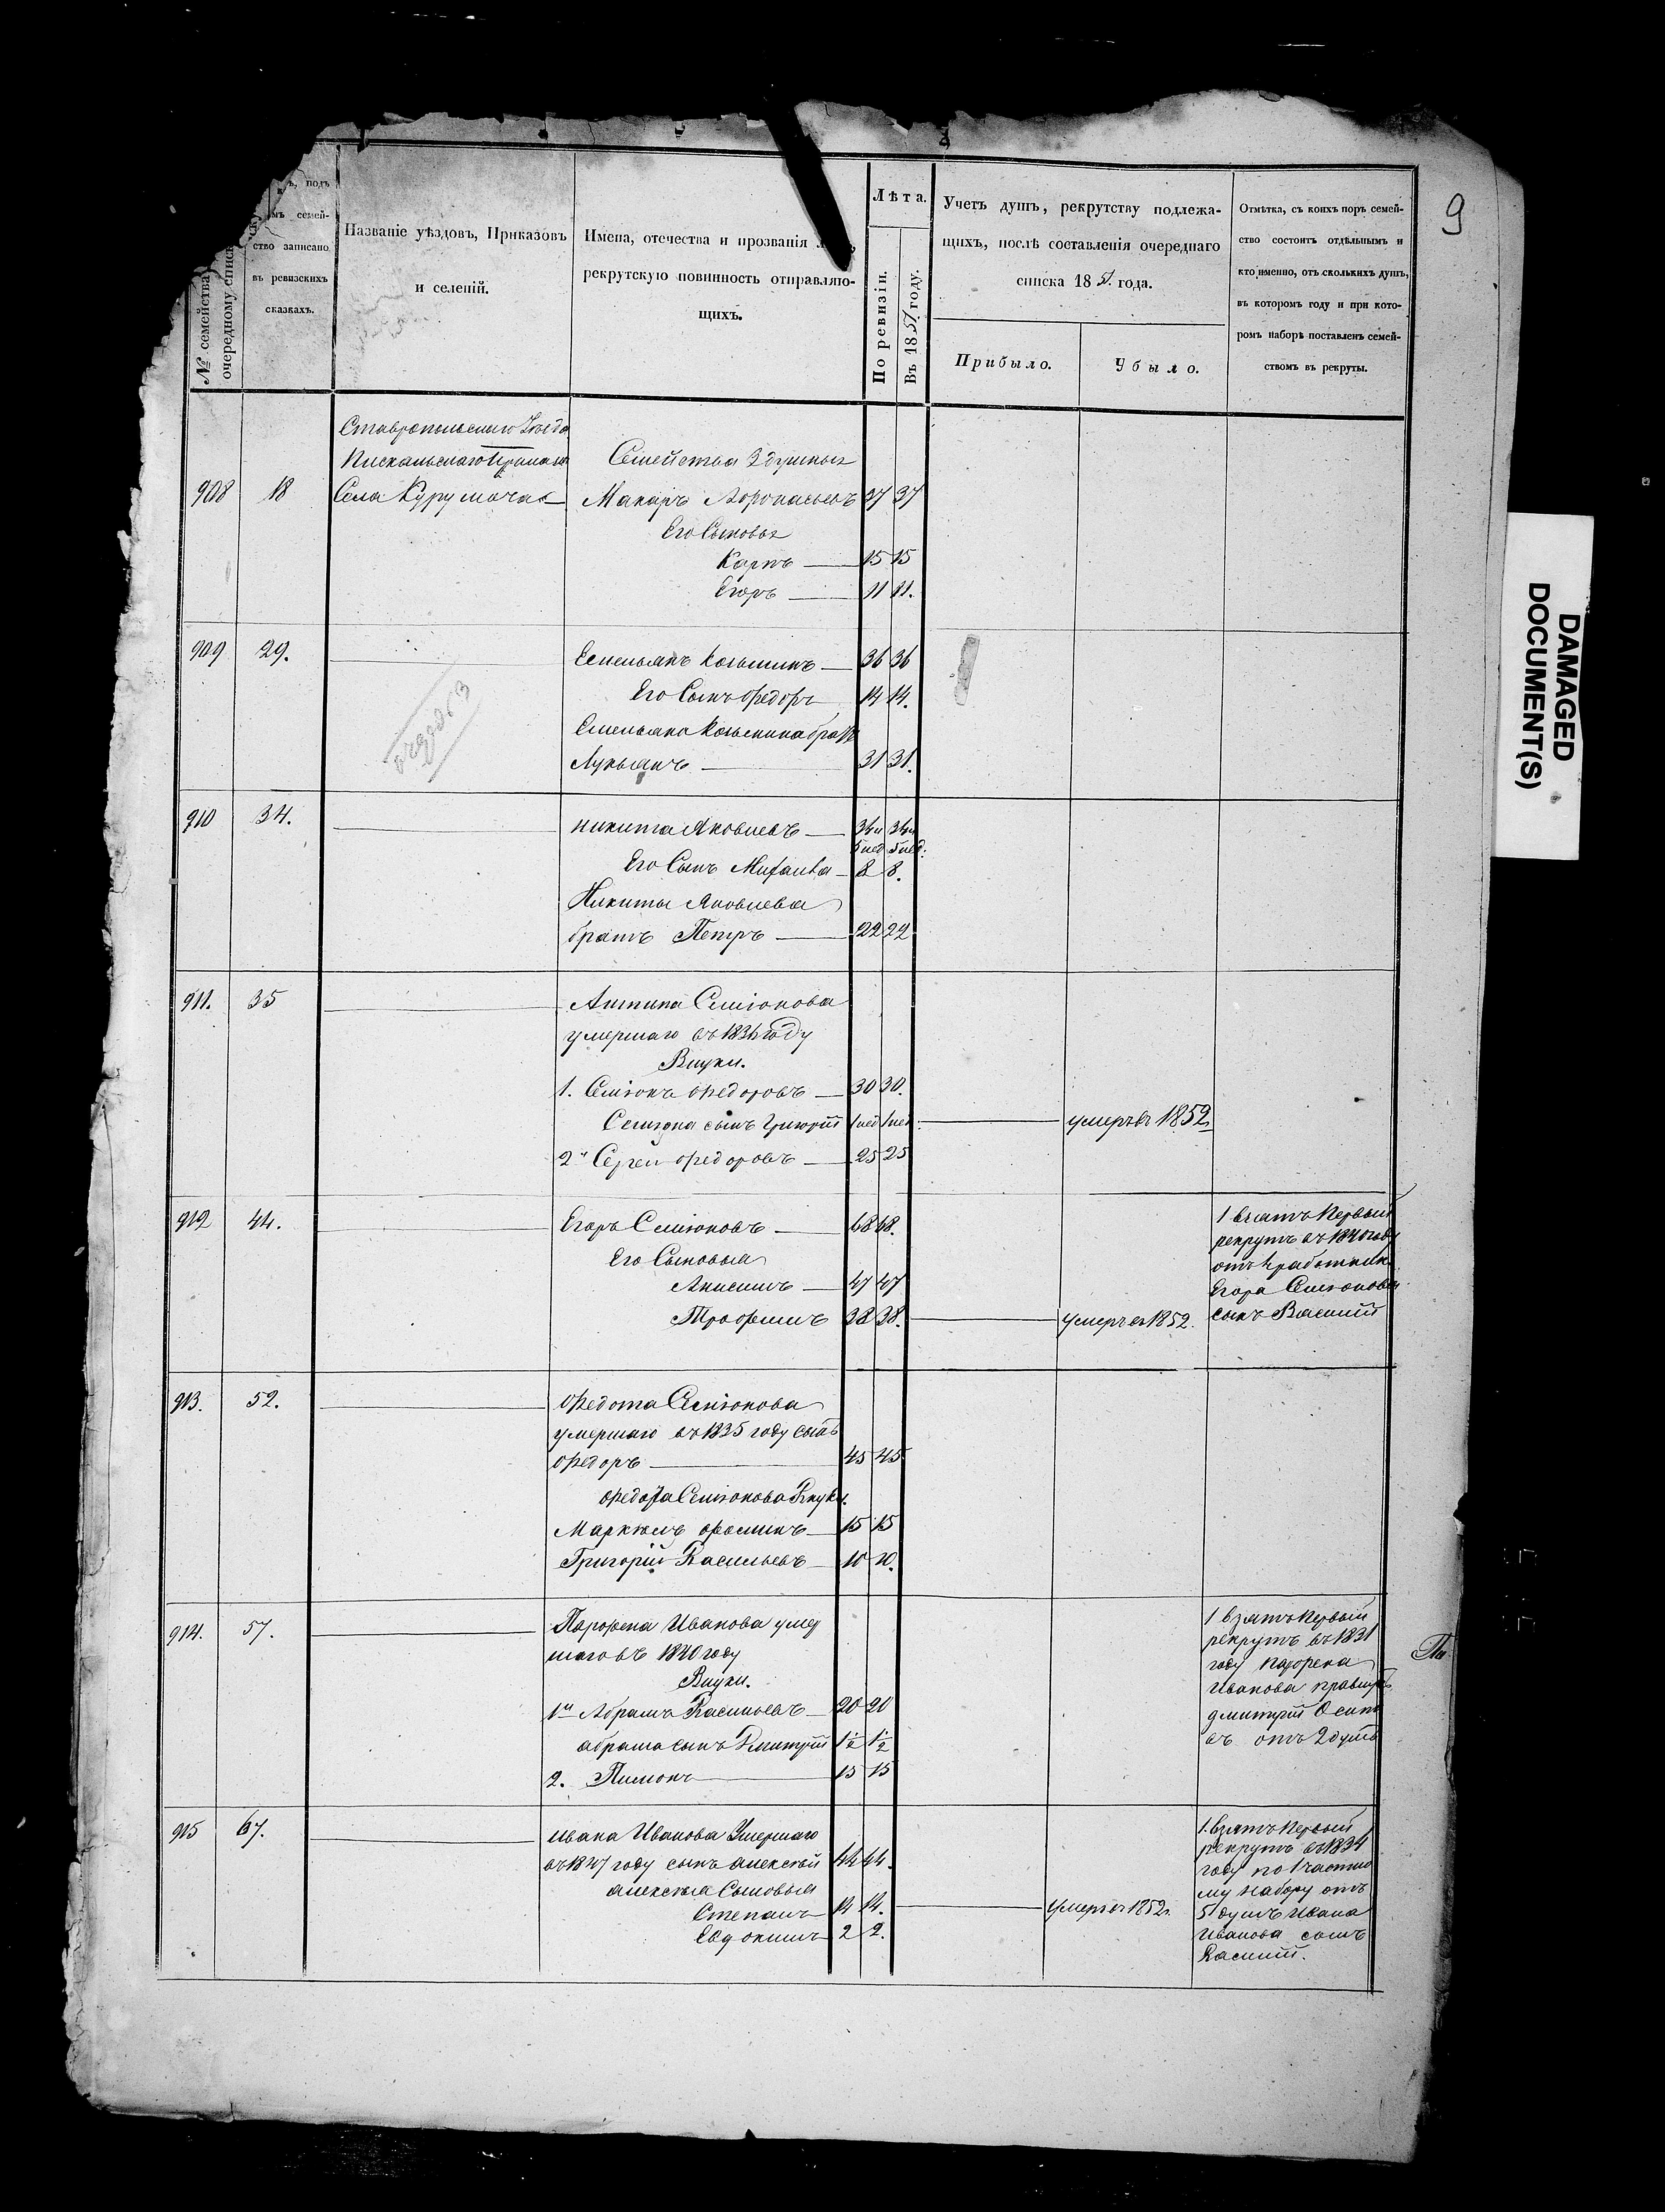 9
№ семейства
очередному списк
ъ, подъ
мъ семей-
ство записано
въ ревизскихъ
сказкахъ.
Названіе уѣздовъ, Приказовъ
и селеній.
Имена, отечества и прозванія
рекрутскую повинность отправляю-
щихъ.
Лѣта.
По ревизіи.
Въ 1851 году.
Учетъ душъ, рекрутству подлежа-
щихъ, послѣ составленія очереднаго
списка 1851 года.
Прибыло.
Убыло.
Отмѣтка, съ коихъ поръ семей-
ство состоитъ отдѣльнымъ и
кто именно, отъ сколькихъ душъ,
въ которомъ году и при кото-
ромъ наборѣ поставленъ семей-
ствомъ въ рекруты.
Ставропольскаго Уѣзда
Пискальскаго Приказа
Семейства 3 душныя
908 18 Села Курумоча Макаръ Афонасьевъ 37 37
Его Сыновья
Карпъ 15 15
Егоръ 11 11.
909 29. Емельянъ Козьминъ 36 36
Его Сынъ Федоръ 14 14.
Емельяна Козьмина братъ
Лукьянъ 31 31.
910 34. Никита Яковлевъ 34 и 34 и
5 нед 5 нед.
Его Сынъ Михаила 8 8.
Никиты Яковлева
братъ Петръ 22 22
911. 35 Антипа Семіонова
умершаго въ 1836 году
Внуки.
1. Семіонъ Федоровъ 30 30.
Семіона сынъ Григорій 1 нед 1 нед умеръ въ 1852
2й Сергей Федоровъ 25 25
912 44. Егоръ Семіоновъ 68 68.
Его Сыновья
Анисимъ 47 47
Трофимъ 38 38. умеръ въ 1852.
1 взятъ Первый
рекрутъ въ 1840 году
отъ работник
Егора Семіонова
сынъ Василій
913. 52. Федота Семіонова
умершаго въ 1835 году сынъ
Федоръ 45 45
Федота Семіонова Внуки.
Маркелъ Фоминъ 15 15
Григорій Васильевъ 10 10.
914. 57. Парфена Иванова умер
шаго въ 1840 году
Внуки.
1й Абрамъ Васильевъ 20 20
Абрама сынъ Дмитрій 1½ 1½
2. Пимонъ 15 15
1 взятъ Первый
рекрутъ въ 1831
году Парфена
Иванова
Дмитрій Осипо
въ отъ 2 душъ
915 67. Ивана Иванова Умершаго
въ 1847 году сынъ Алексѣй 44 44.
Алексѣя Сыновья
Степанъ 14 14. умеръ въ 1852 г.
Евдокимъ 2 2.
1. Взятъ Первый
рекрутъ въ 1834
году по 1 частно
му Набору отъ
5 душъ Ивана
Иванова сынъ
Василій.
DAMAGED
DOCUMENT(S)